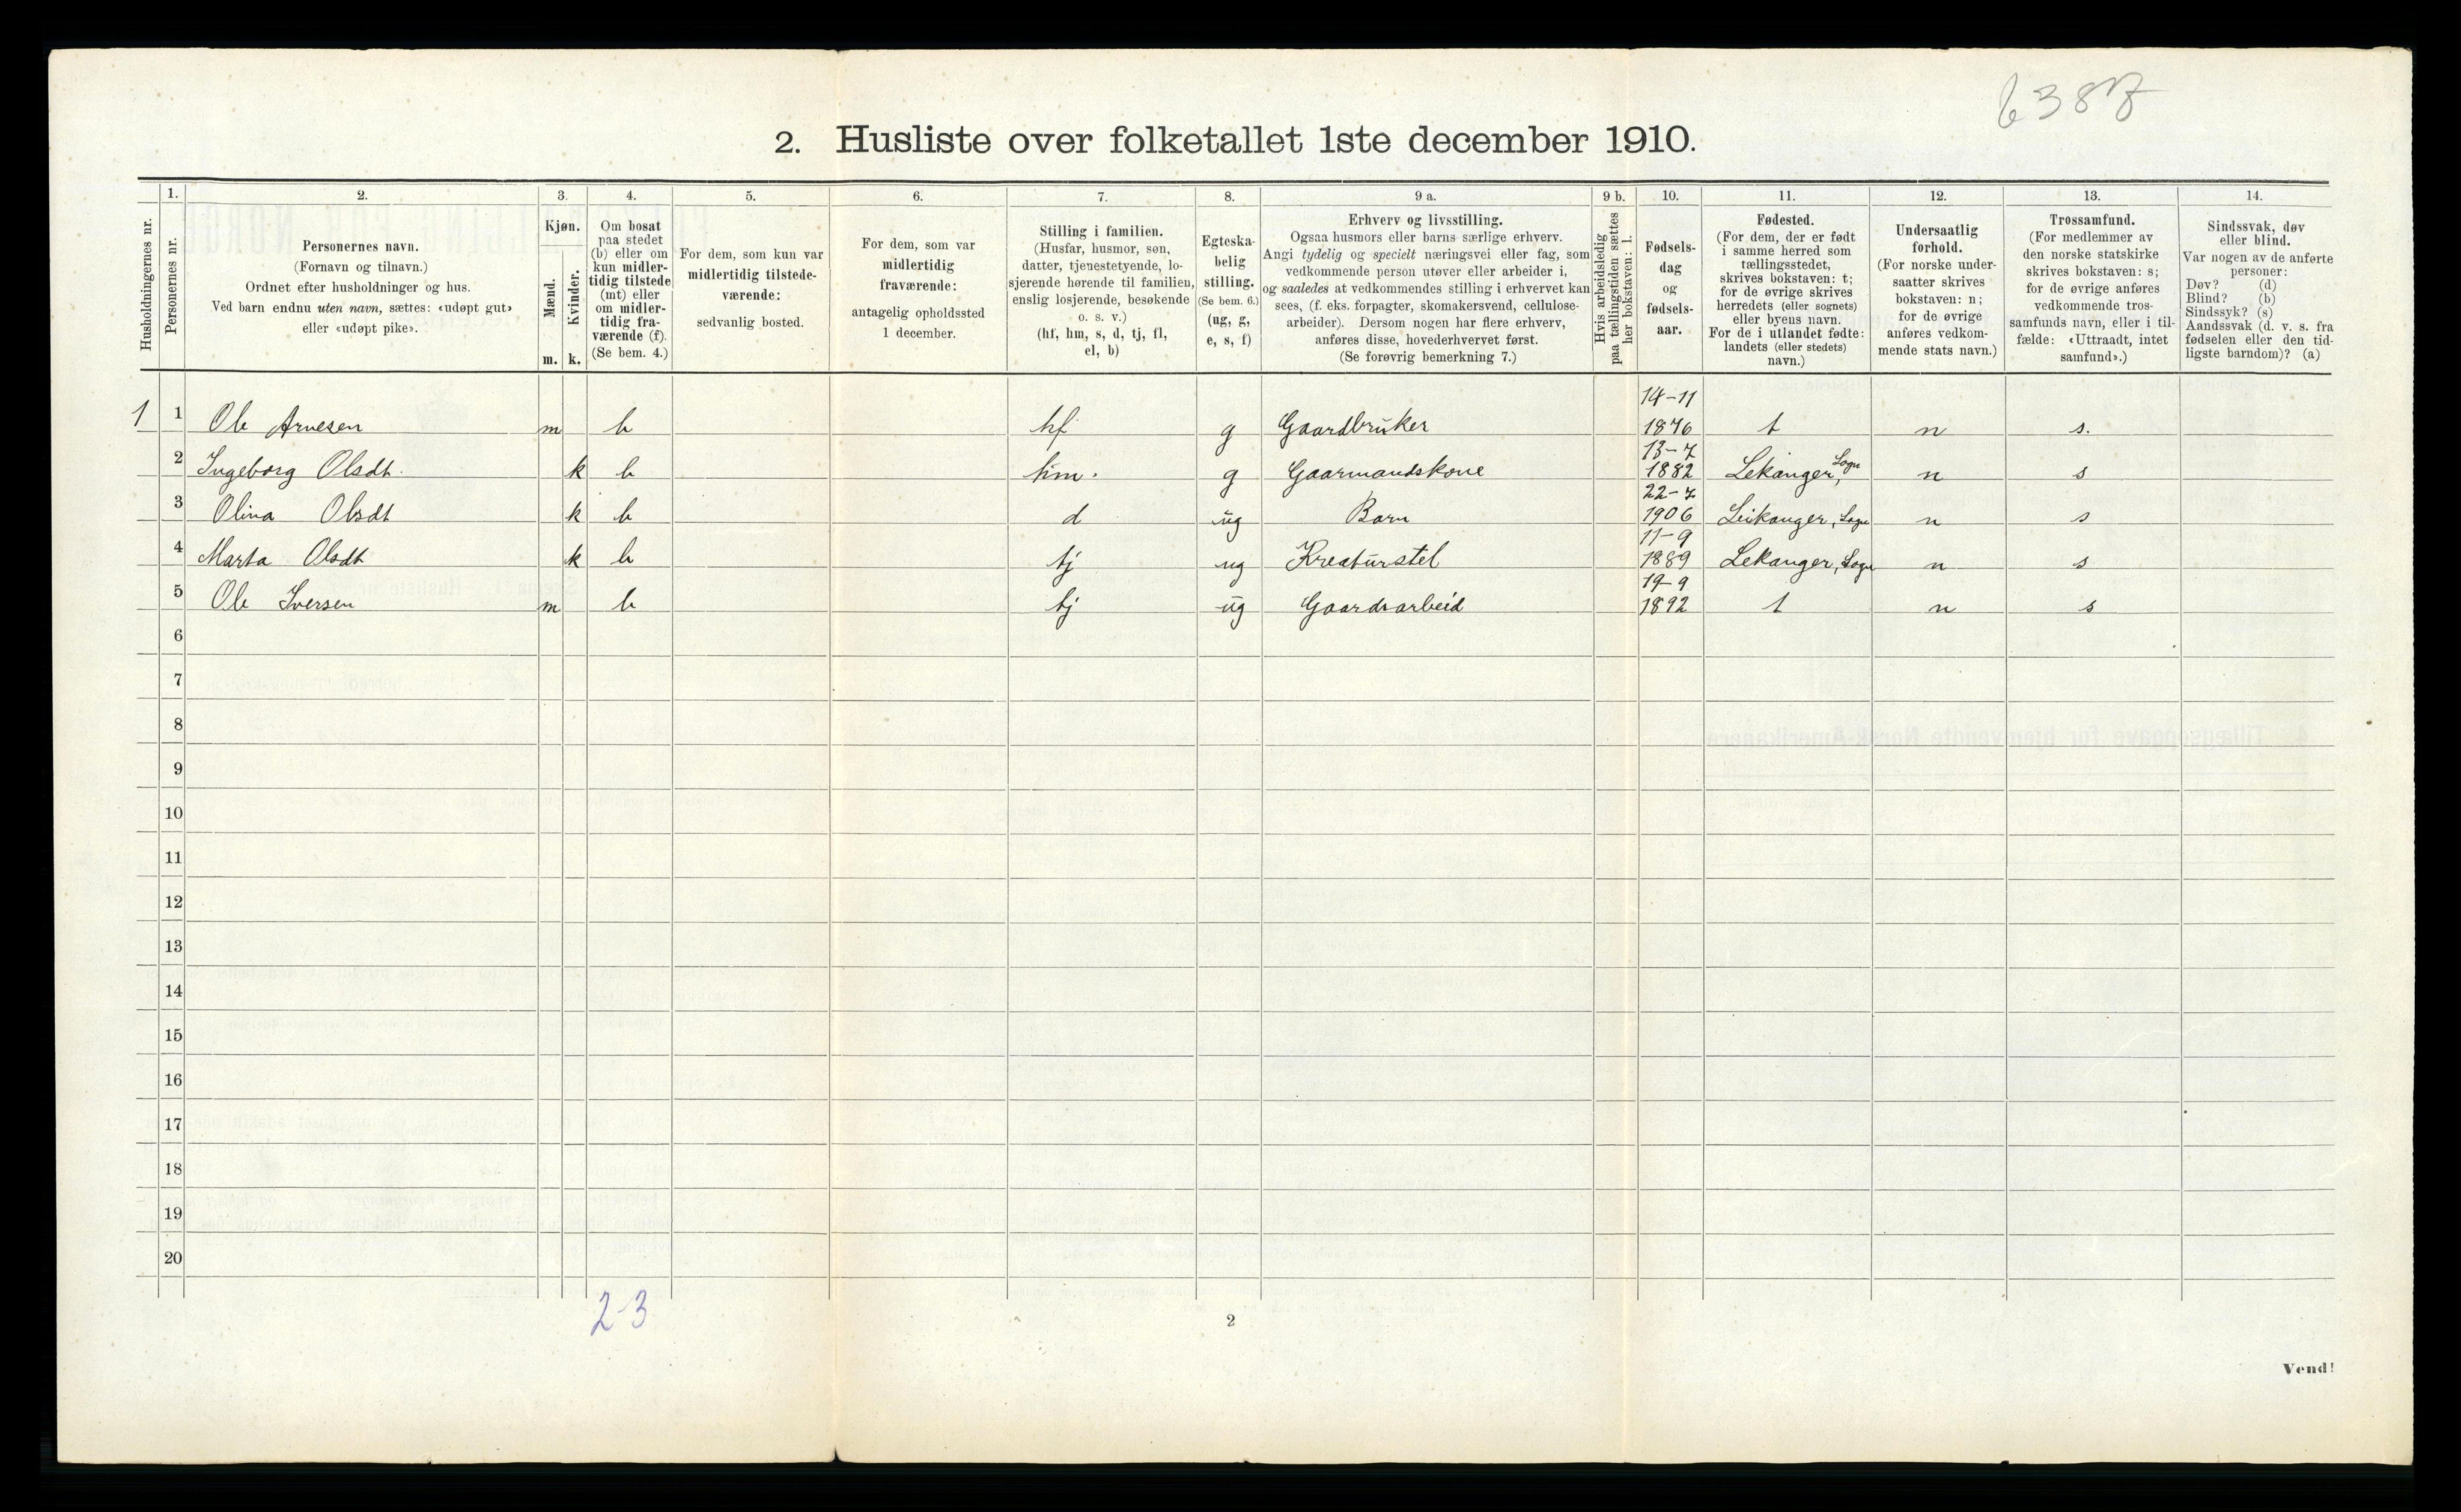 6387
2. Husliste over folketallet 1ste december 1910.
Husholdningernes nr.
1.
Personernes nr.
2.
Personernes navn.
(Fornavn og tilnavn.)
Ordnet efter husholdninger og hus.
Ved barn endnu uten navn, sættes: «udøpt gut»
eller «udøpt pike».
3.
Kjøn.
Mænd.
Kvinder.
m. k.
4.
Om bosat
paa stedet
(b) eller om
kun midler-
tidig tilstede
(mt) eller
om midler-
tidig fra-
værende (f).
(Se bem. 4.)
5.
For dem, som kun var
midlertidig tilstede-
værende:
sedvanlig bosted.
6.
For dem, som var
midlertidig
fraværende:
antagelig opholdssted
1 december.
7.
Stilling i familien.
(Husfar, husmor, søn,
datter, tjenestetyende, lo-
sjerende hørende til familien,
enslig losjerende, besøkende
o. s. v.)
(hf, hm, s, d, tj, fl,
el, b)
8.
Egteska-
belig
stilling.
(Se bem. 6.)
(ug, g,
e, s, f)
9 a.
Erhverv og livsstilling.
Ogsaa husmors eller barns særlige erhverv.
Angi tydelig og specielt næringsvei eller fag, som
vedkommende person utøver eller arbeider i,
og saaledes at vedkommendes stilling i erhvervet kan
sees, (f. eks. forpagter, skomakersvend, cellulose-
arbeider). Dersom nogen har flere erhverv,
anføres disse, hovederhvervet først.
(Se forøvrig bemerkning 7.)
9 b.
Hvis arbeidsledig
paa tællingstiden sættes
her bokstaven: l.
10.
Fødsels-
dag
og
fødsels-
aar.
11.
Fødested.
(For dem, der er født
i samme herred som
tællingsstedet,
skrives bokstaven: t;
for de øvrige skrives
herredets (eller sognets)
eller byens navn.
For de i utlandet fødte:
landets (eller stedets)
navn.)
12.
Undersaatlig
forhold.
(For norske under-
saatter skrives
bokstaven: n;
for de øvrige
anføres vedkom-
mende stats navn.)
13.
Trossamfund.
(For medlemmer av
den norske statskirke
skrives bokstaven: s;
for de øvrige anføres
vedkommende tros-
samfunds navn, eller i til-
fælde: «Uttraadt, intet
samfund».)
14.
Sindssvak, døv
eller blind.
Var nogen av de anførte
personer:
Døv? (d)
Blind? (b)
Sindssyk? (s)
Aandssvak (d. v. s. fra
fødselen eller den tid-
ligste barndom)? (a)
1 1 Ole Arnesen m b hf g Gaardbruker 14-11 1876 t n s.
2 Ingeborg Olsdt. k b hm. g Gaarmandskone 13-7 1882 Lekanger, Sogn n s
3 Olina Olsdt k b d ug Barn 22-7 1906 Leikanger, Sogn n s
4 Marta Olsdt k b tj ug Kreaturstel 11-9 1889 Lekanger, Sogn n s
5 Ole Iversen m b tj ug Gaardsarbeid 19-9 1892 t n s
6
7
8
9
10
11
12
13
14
15
16
17
18
19
20
2-3
2
Vend!